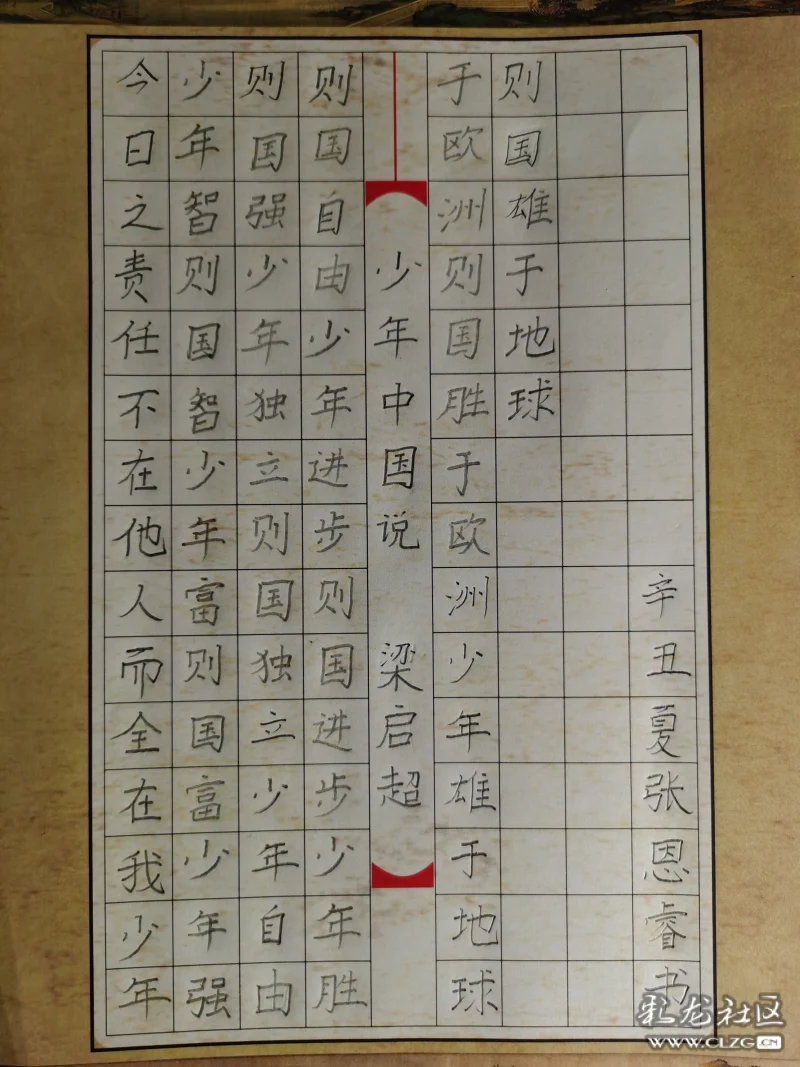 今日之责任不在他人而全在我少年
少年智则国智少年富则国富少年强
则国强少年独立则国独立少年自由
则国自由少年进步则国进步少年胜
少年中国说 梁启超
于欧洲则国胜于欧洲少年雄于地球
则国雄于地球
辛丑夏张恩睿书
彩龙社区
WWW.CLZG.CN